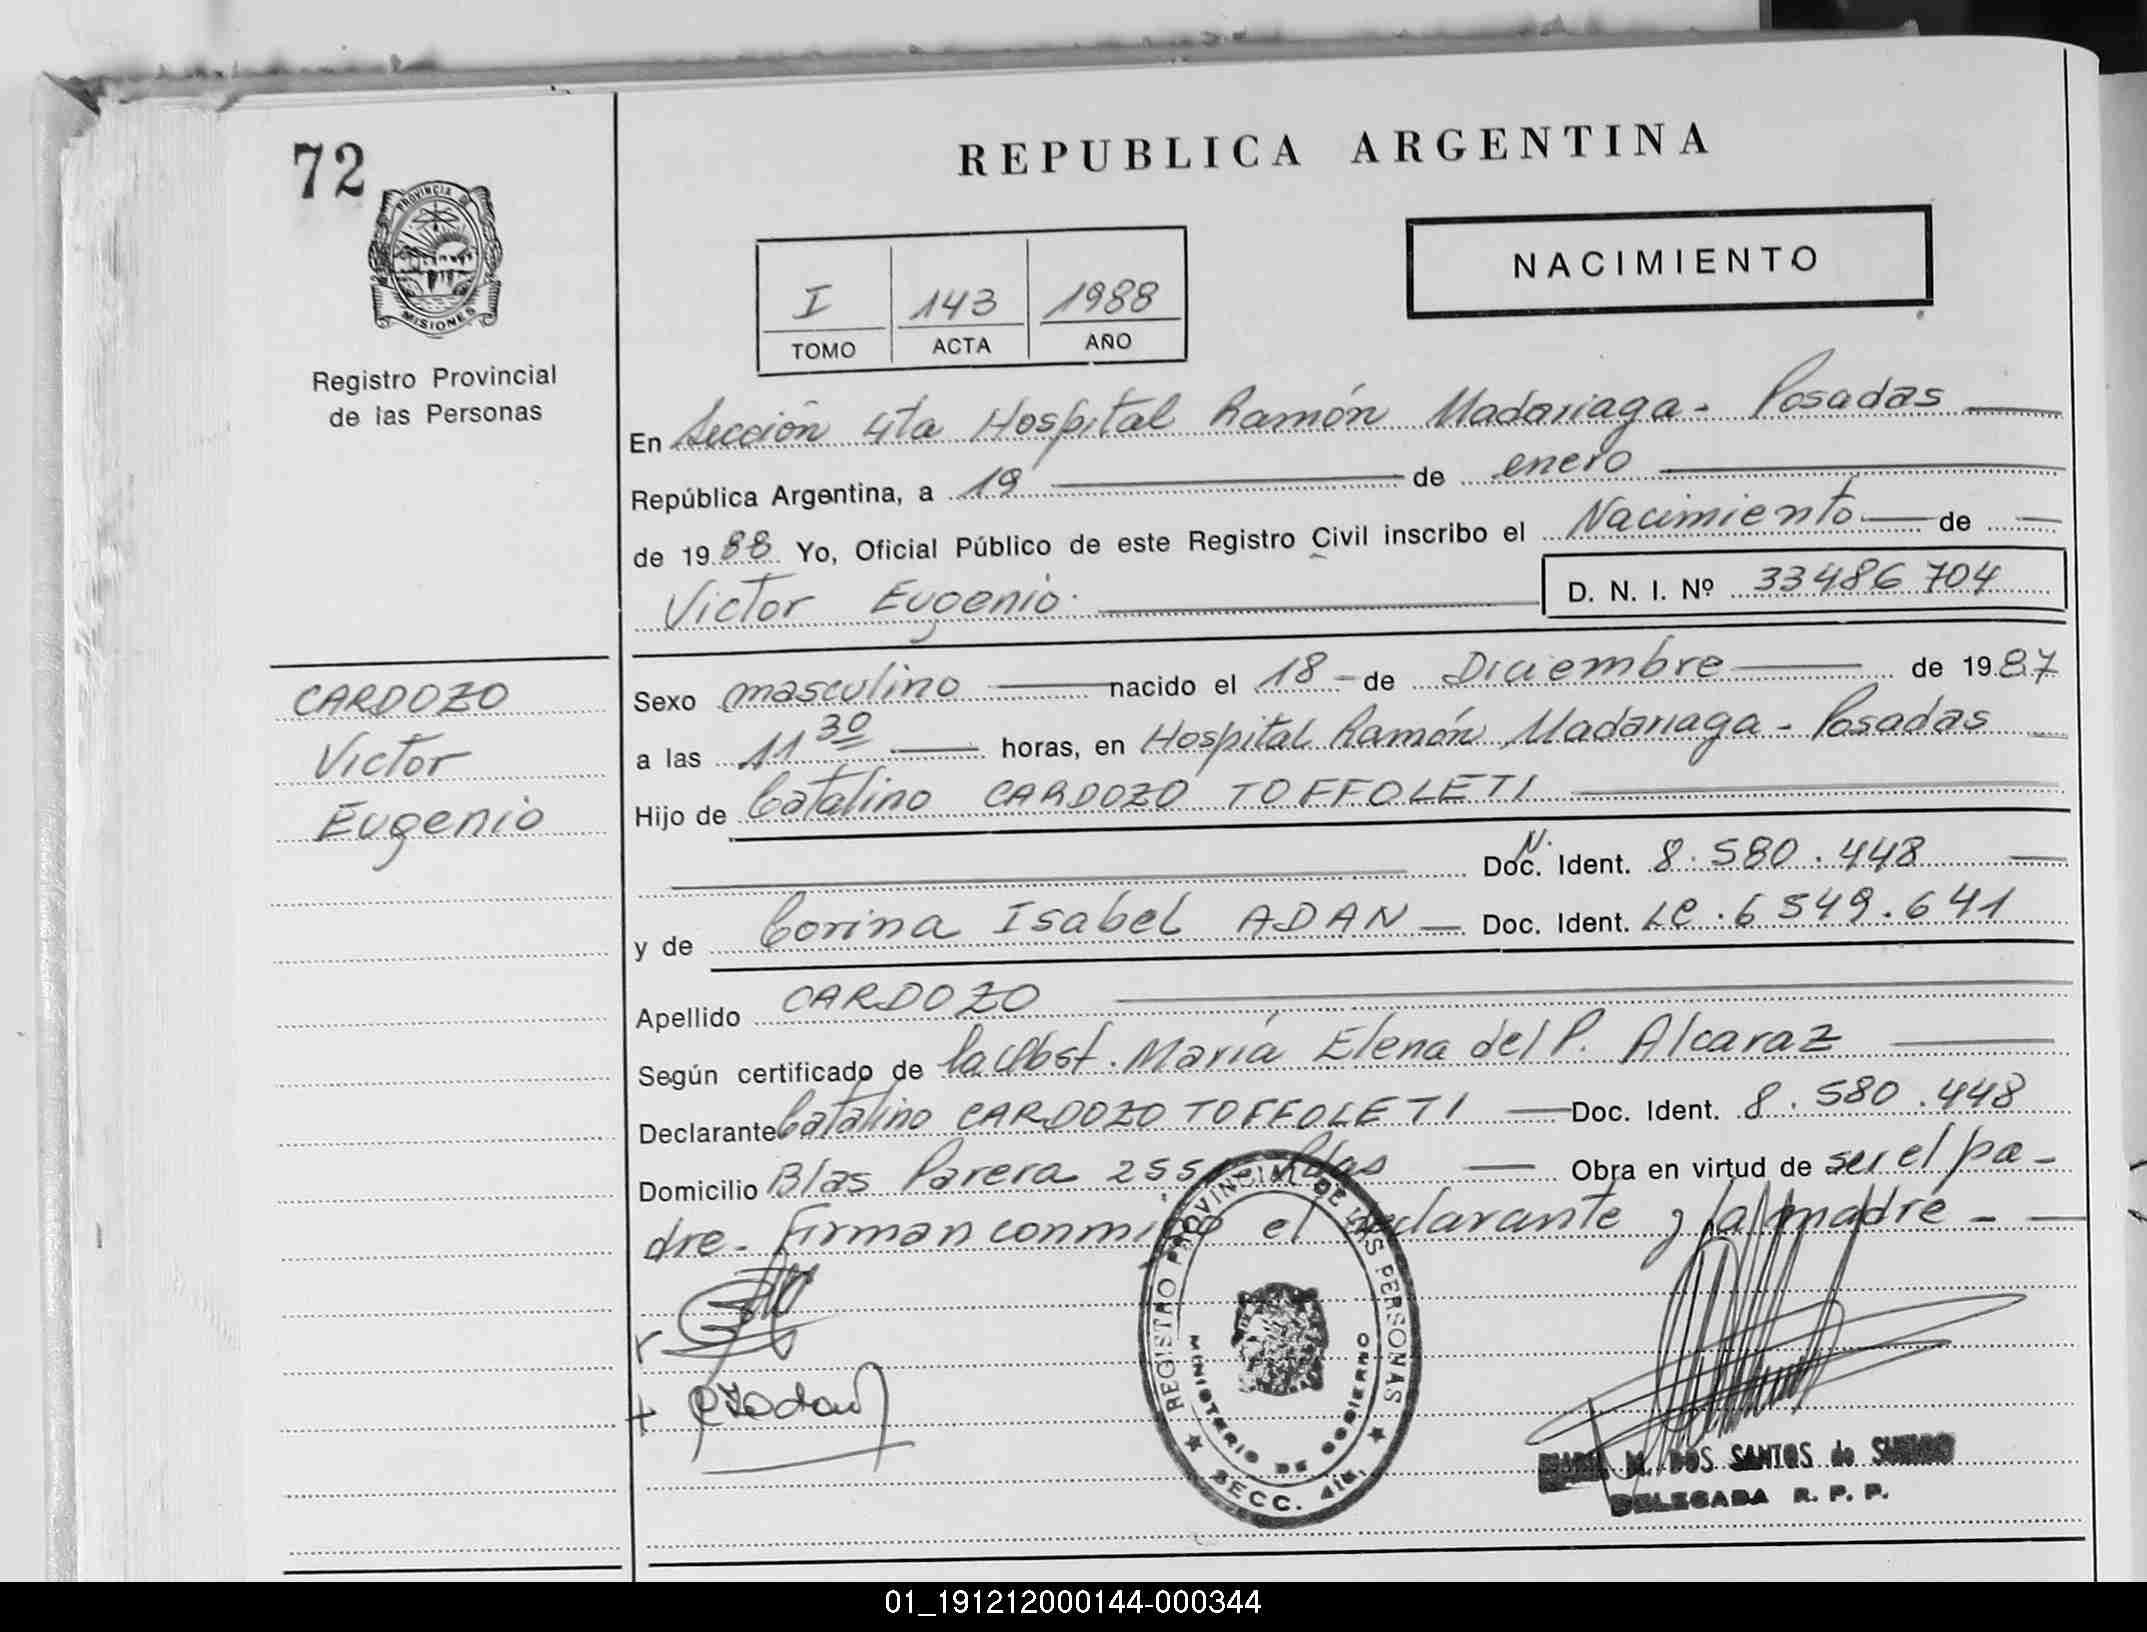 72
REPUBLICA ARGENTINA
PROVINCIA DE
MISIONES
Registro Provincial
de las Personas
NACIMIENTO
I 143 1988
TOMO ACTA AÑO
En Sección 4ta Hospital Ramón Madariaga - Posadas
República Argentina, a 19 de enero
de 1988 Yo, Oficial Público de este Registro Civil inscribo el Nacimiento de
Victor Eugenio D. N. I. Nº 33486704
CARDOZO
Victor
Eugenio
Sexo masculino nacido el 18 - de Diciembre de 1987
a las 11 30 horas, en Hospital Ramón Madariaga - Posadas
Hijo de Catalino CARDOZO TOFFOLETI
N. Doc. Ident. 8.580.448
y de Corina Isabel ADAN Doc. Ident. LC.6549.641
Apellido CARDOZO
Según certificado de la Obst. María Elena del P. Alcaraz
Declarante Catalino CARDOZO TOFFOLETI Doc. Ident. 8.580.448
Domicilio Blas Parera Pdas Obra en virtud de ser el pa-
dre - Firman conmigo el declarante y la madre -
REGISTRO PROVINCIAL DE LAS PERSONAS
MINISTERIO DE GOBIERNO
SECC. 4ta.
M. DOS SANTOS de
DELEGADA R. P. P.
01_191212000144-000344